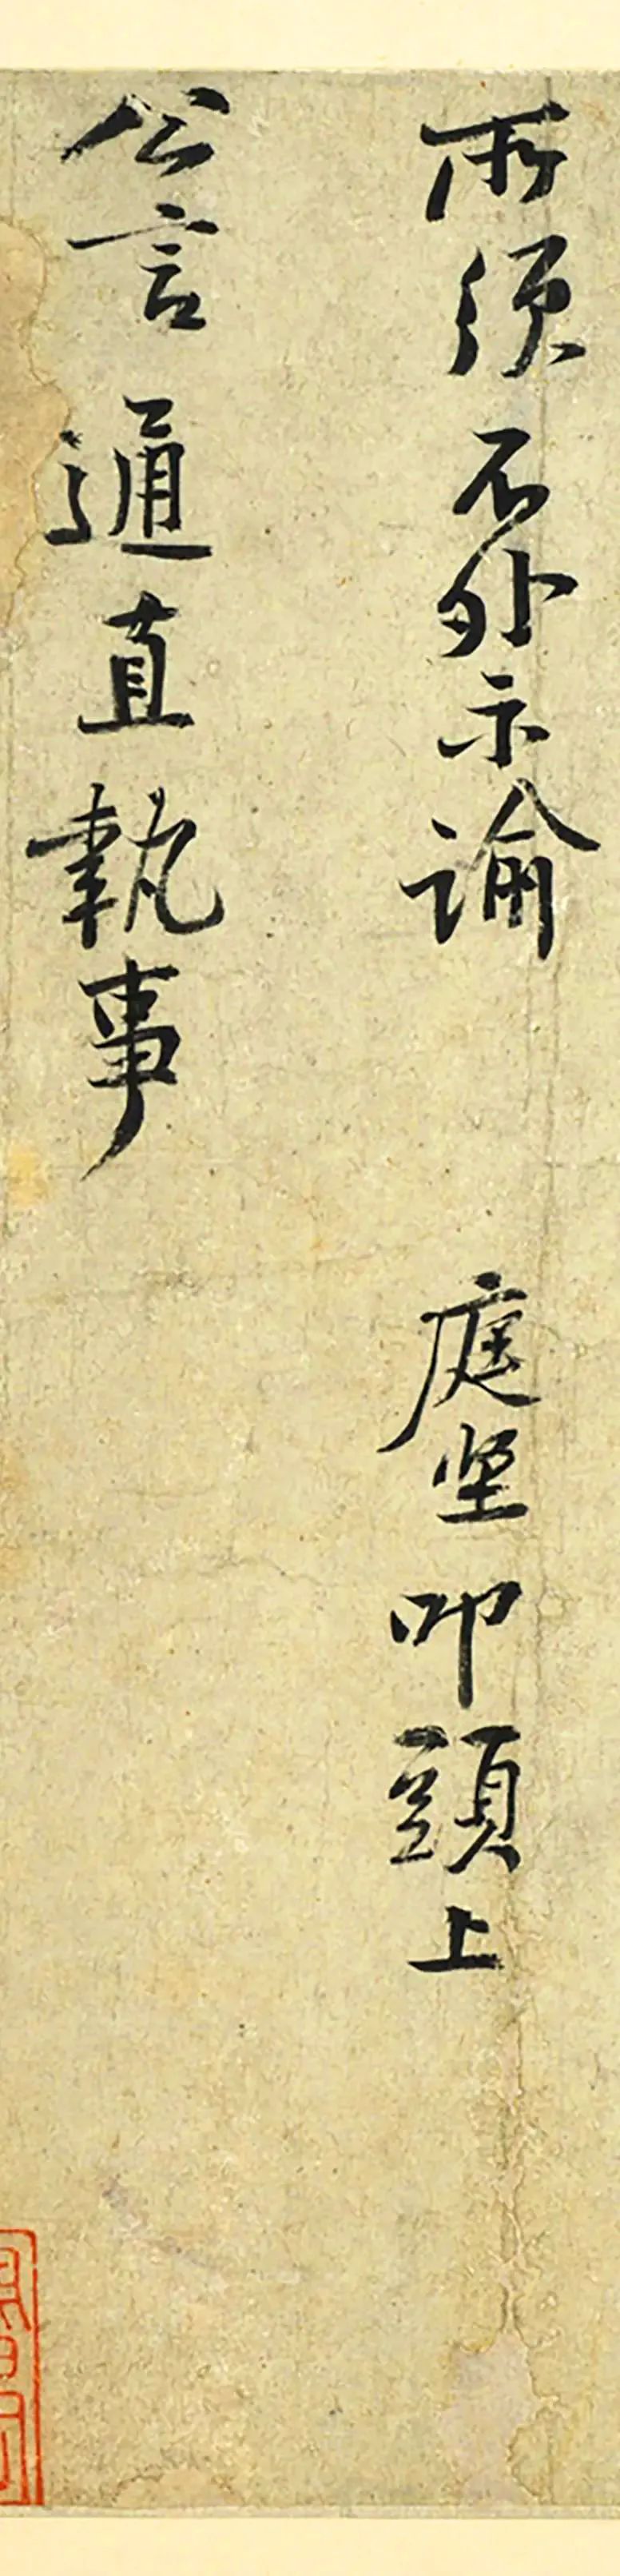 所須不外示諭 庭坚叩頭上
公言通直執事